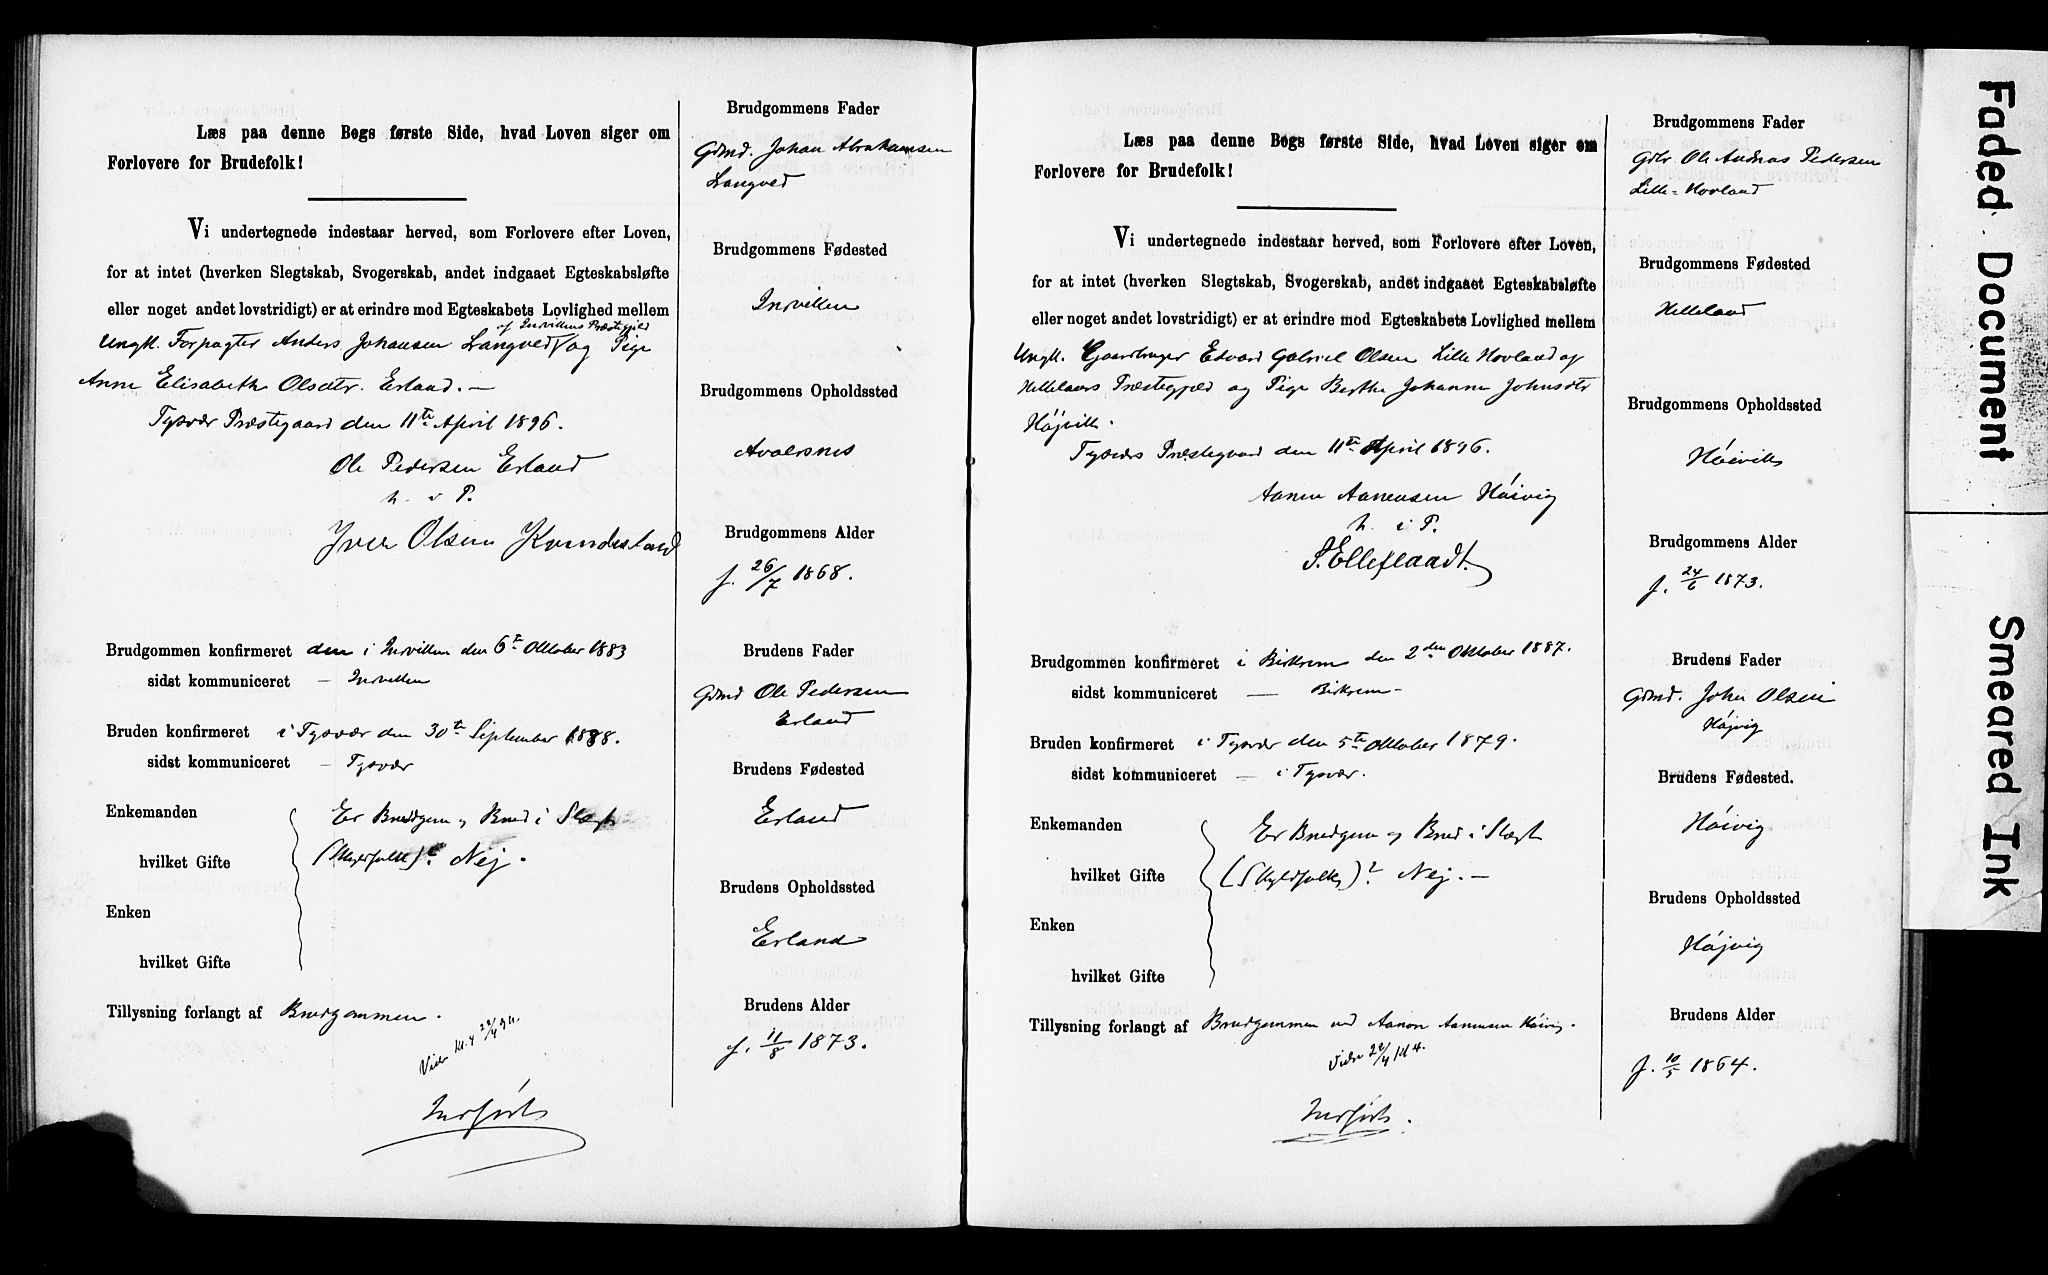 Læs paa denne Bogs første Side, hvad Loven siger om
Forlovere for Brudefolk!
Vi undertegnede indestaar herved, som Forlovere efter Loven,
for at intet (hverken Slegtskab, Svogerskab, andet indgaaet Egteskabsløfte
eller noget andet lovstridigt) er at erindre mod Egteskabets Lovlighed mellem
af Indvikens Præstegjeld
Ungk. Forpagter Anders Johansen Langved og Pige
Anne Elisabeth Olsdtr. Erland. —
Tysvær Præstegaard den 11te April 1896.
Ole Pedersen Erland
m. i P.
Iver Olsen Kvindesland
Brudgommen konfirmeret den i Indviken den 6te Oktober 1883
sidst kommuniceret — Indviken
Bruden konfirmeret i Tysvær den 30te September 1888.
sidst kommuniceret — Tysvær
Enkemanden
hvilket Gifte
Enken
hvilket Gifte
Er Brudgom og Brud i Slægt
(Skyldfolk)? Nej.
Tillysning forlangt af Brudgommen.
Viede Kl. 4 22/4 96.
Indført
Brudgommens Fader
Gdmd. Johan Abrahamsen
Langved
Brudgommens Fødested
Indviken
Brudgommens Opholdssted
Avaldsnes
Brudgommens Alder
f. 26/7 1868.
Brudens Fader
Gdmd Ole Pedersen
Erland
Brudens Fødested
Erland
Brudens Opholdssted
Erland
Brudens Alder
f. 11/8 1873.
Læs paa denne Bogs første Side, hvad Loven siger om
Forlovere for Brudefolk!
Vi undertegnede indestaar herved, som Forlovere efter Loven,
for at intet (hverken Slegtskab, Svogerskab, andet indgaaet Egteskabsløfte
eller noget andet lovstridigt) er at erindre mod Egteskabets Lovlighed mellem
Ungk. Gaardbruger Edvard Gabriel Olsen Lille Hovland af
Hellelands Præstegjeld og Pige Berthe Johanne Johnsdtr
Højvik.
Tysvær Præstegaard den 11te April 1896.
Aanen Aanensen Høivig
m. i P.
S. Elleflaadt.
Brudgommen konfirmeret i Birkrem den 2den Oktober 1887.
sidst kommuniceret — Birkrem —
Bruden konfirmeret i Tysvær den 5te Oktober 1879.
sidst kommuniceret — i Tysvær.
Enkemanden
hvilket Gifte
Enken
hvilket Gifte
Er Brudgom og Brud i Slægt
(Skyldfolk)? Nej. —
Tillysning forlangt af Brudgommen ved Aanen Aanensen Høivig.
Viede 22/4 Kl 4.
Indført.
Brudgommens Fader
Gdbr. Ole Andreas Pedersen
Lille-Hovland
Brudgommens Fødested
Helleland
Brudgommens Opholdssted
Høivik
Brudgommens Alder
f. 24/6 1873.
Brudens Fader
Gdmd. John Olsen
Højvig
Brudens Fødested.
Høivig
Brudens Opholdssted
Højvig
Brudens Alder
f. 10/5 1864.
Faded Document
Smeared Ink